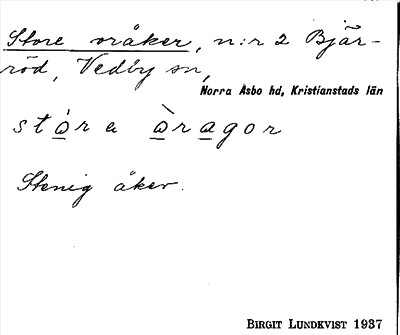 Store oråker, n:r 2 Bjär-
röd, Vedby sn,
Norra Åsbo hd, Kristianstads län
stọ́ra ọ̀rạgor
Stenig åker.
BIRGIT LUNDKVIST 1937